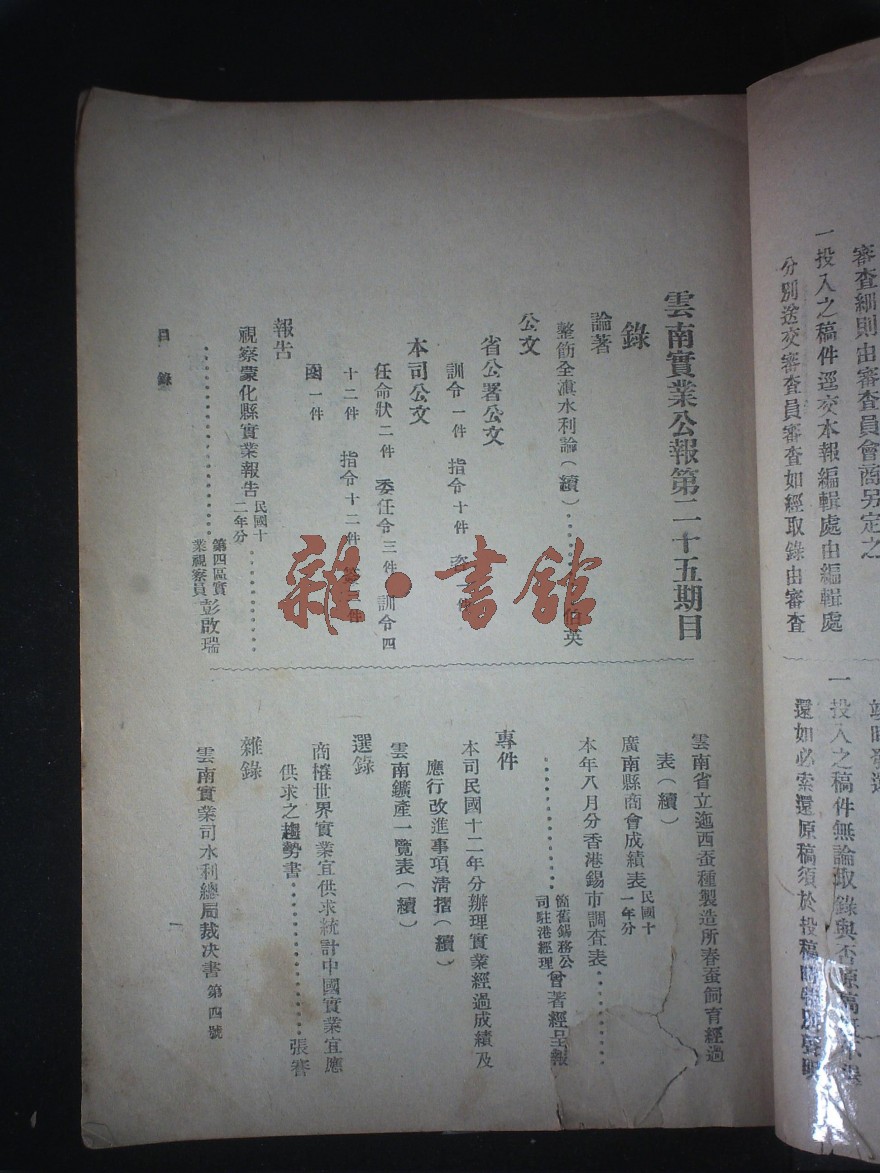 審查細則由審查員會商另定之
一投入之稿件逕交本報編輯處由編輯處
分別送交審查員審查如經取錄由審查
一投入之稿件無論取錄與否原稿
還如必索還原稿須於投稿時特別聲明
雲南實業公報第二十五期目
錄
論著
整飭全滇水利論(續)
伯英
公文
省公署公文
訓令一件 指令十件
件
本司公文
任命狀二件 委任令三件 訓令四
十二件 指令十二件
件
函一件
報告
視察蒙化縣實業報告 民國十
二年分
第四區實
業視察員 彭啟瑞
雲南省立迤西蚕種製造所春蚕飼育經過
表(續)
廣南縣商會成績表 民國十
一年分
本年八月分香港錫市調查表
箇舊錫務公
司駐港經理 曾著經呈報
專件
本司民國十二年分辦理實業經過成績及
應行改進事項淸摺(續)
雲南鑛產一覽表(續)
選錄
商榷世界實業宜供求統計中國實業宜應
供求之趨勢書
張謇
雜錄
雲南實業司水利總局裁决書 第四號
目錄
一
雜·書館